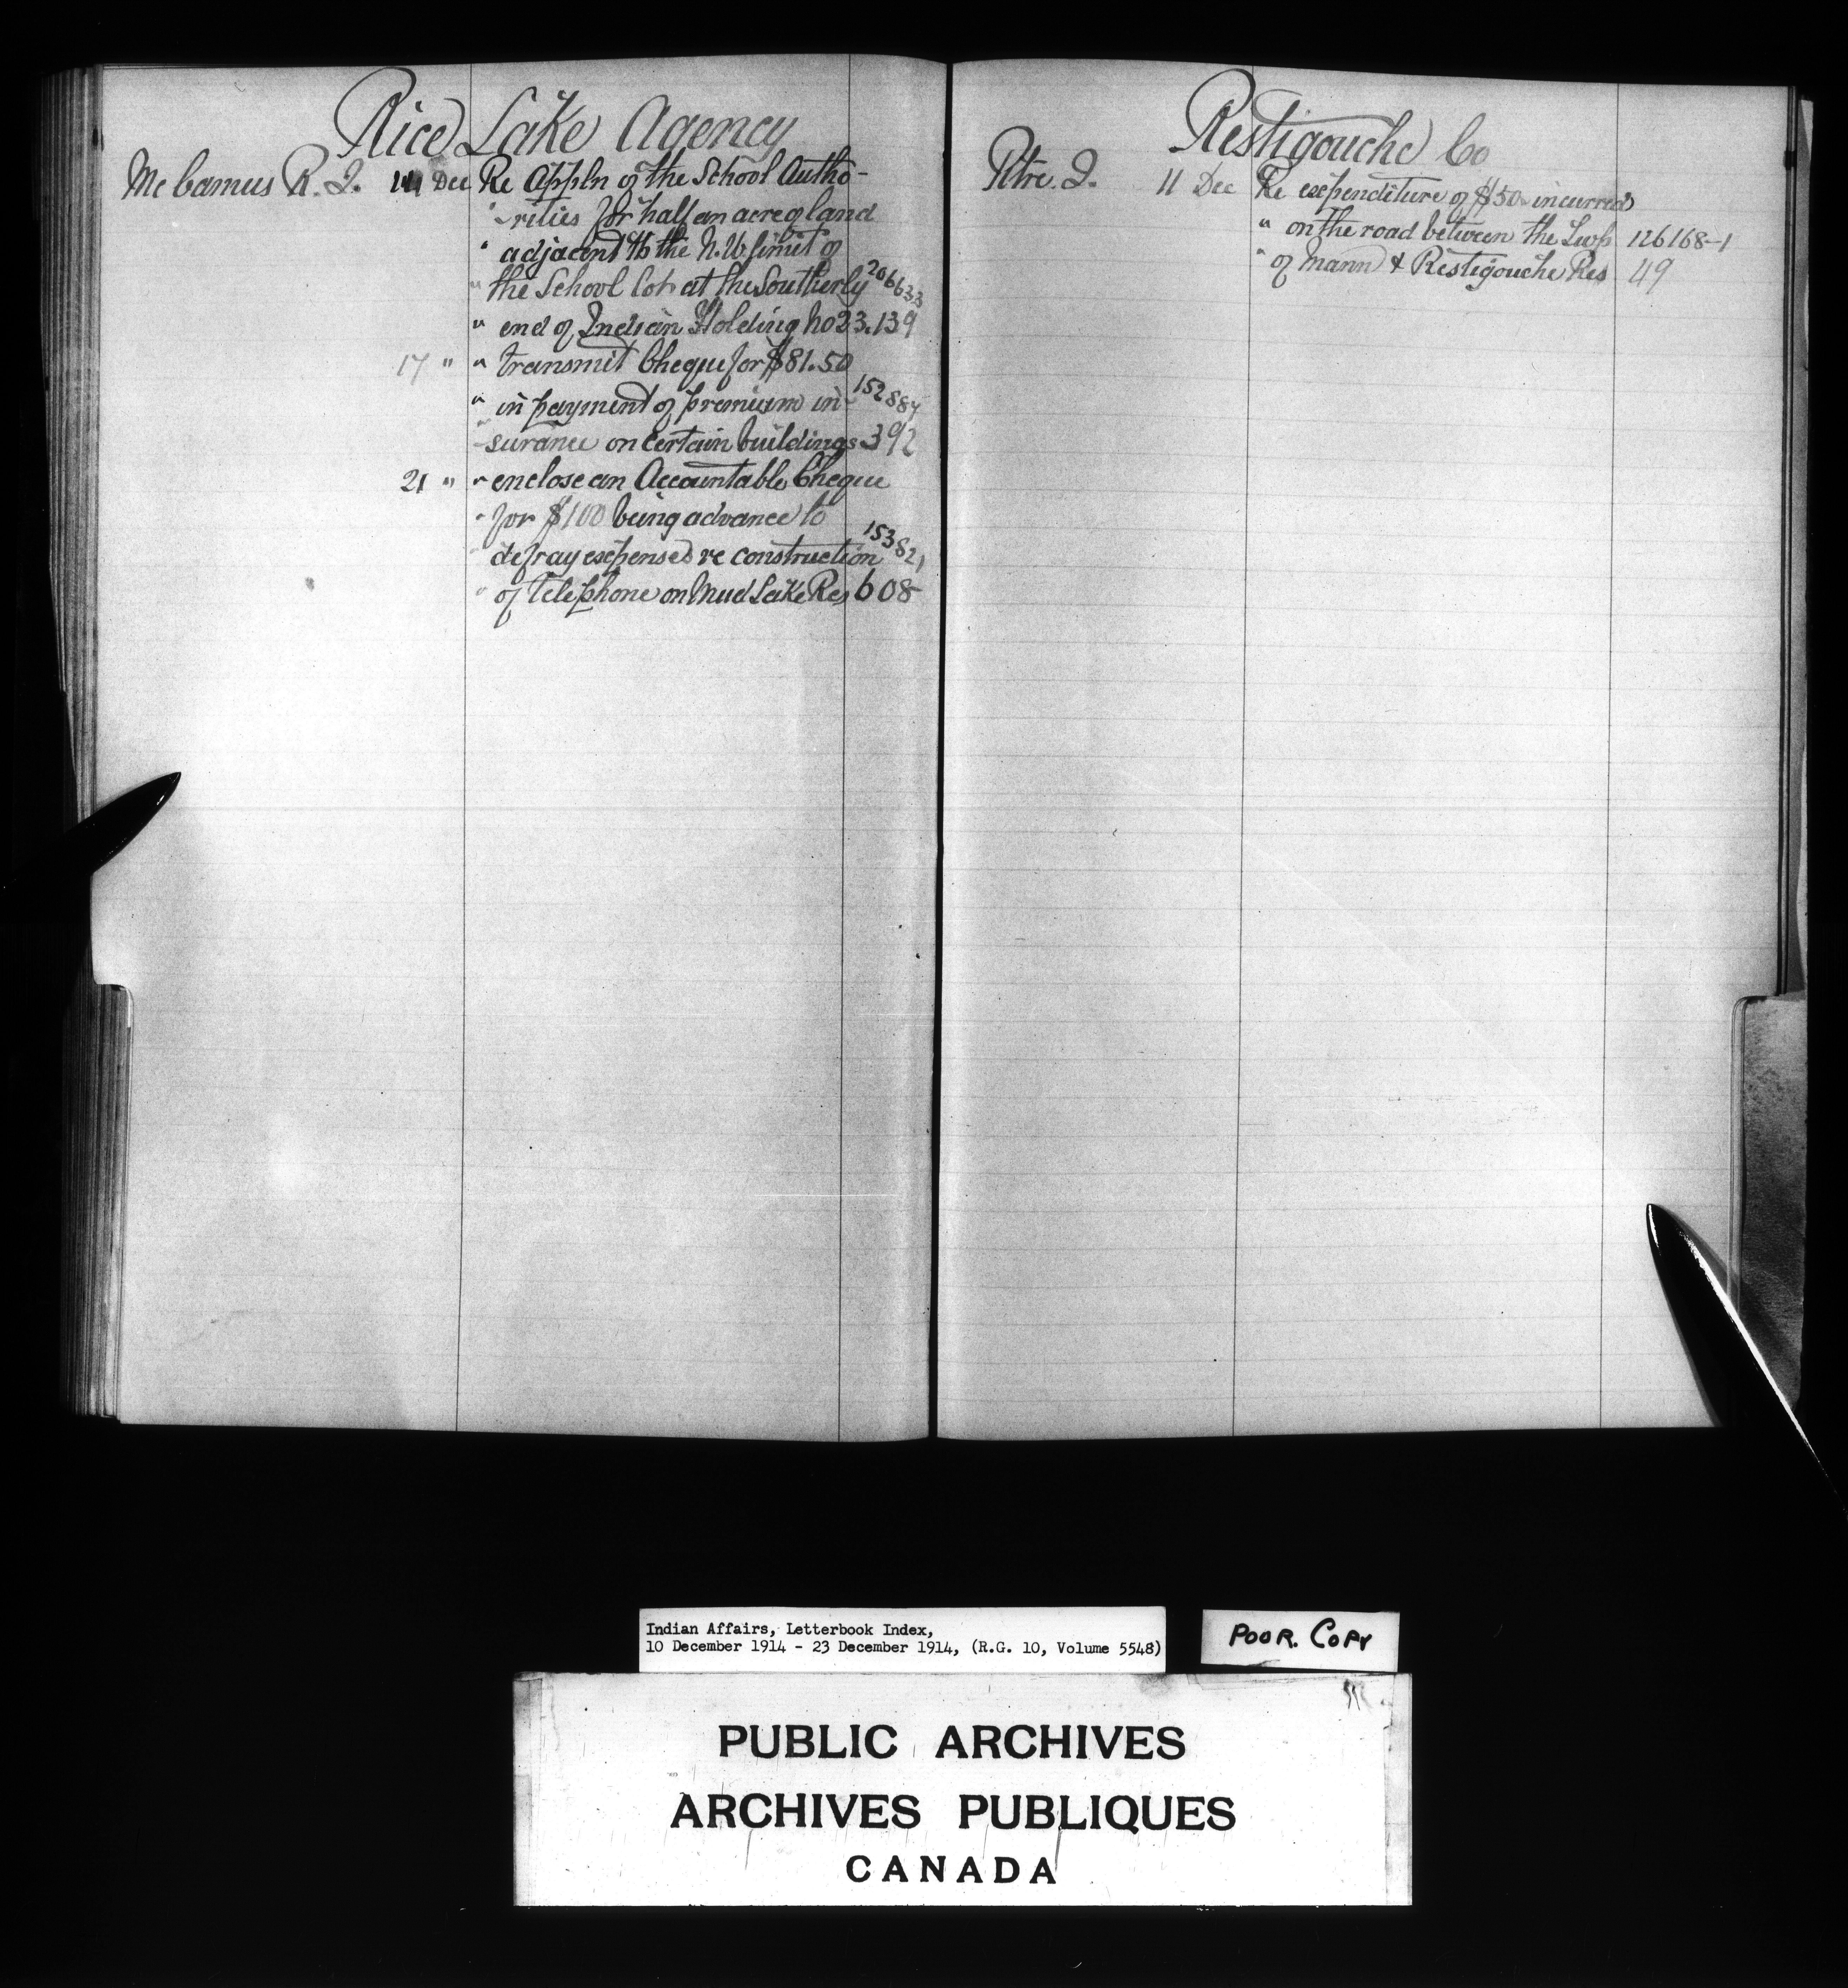 Rice Lake Agency
Mc Camus R. J. 11 Dec Re Appln of the School Autho-
" -rities for half an acre of land
" adjacent to the N.W. limit of
" the School Lot at the Southerly 206633
" end of Indian Holding No 23. 139
17 " " transmit Cheque for $81.50
" in payment of premium in- 152887
" -surance on certain buildings 392
21 " " enclose an Accountable Cheque
" for $100 being advance to
" defray expenses re construction 153821
" of telephone on Mud Lake Res 608
Restigouche Co
Pitre. J. 11 Dec Re expenditure of $50 incurred
" on the road between the Twp 126168-1
" of Mann & Restigouche Res 49
Indian Affairs, Letterbook Index,
10 December 1914 - 23 December 1914, (R.G. 10, Volume 5548)
POOR. COPY
PUBLIC ARCHIVES
ARCHIVES PUBLIQUES
CANADA